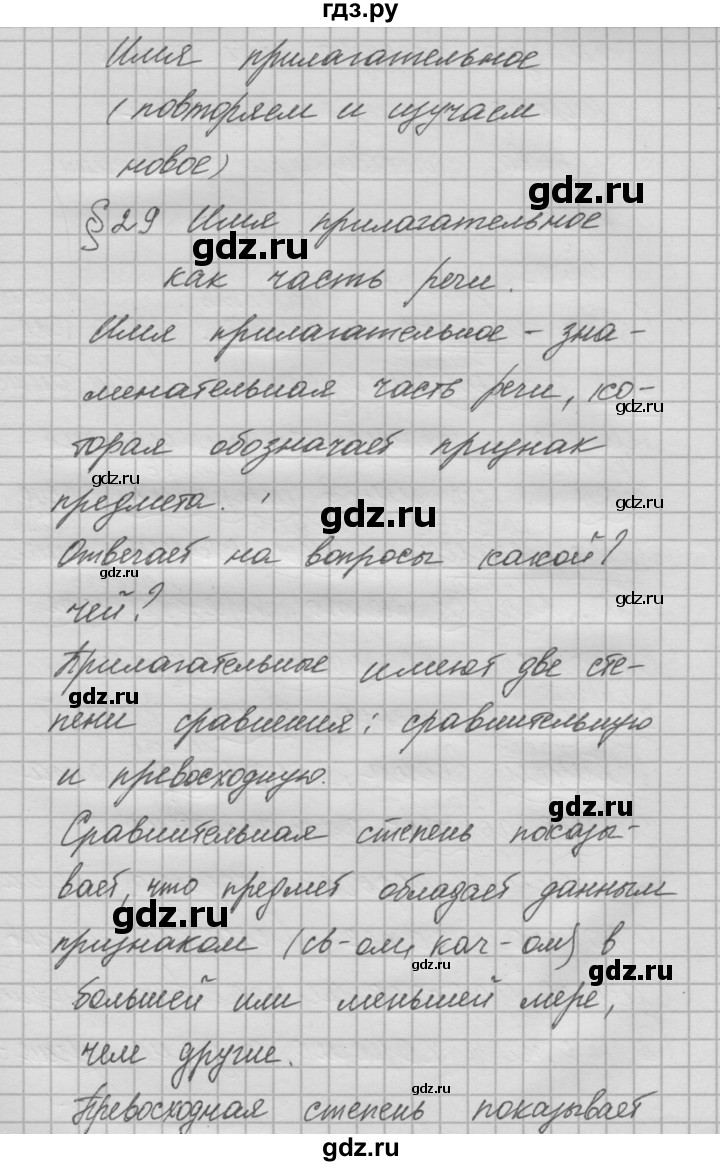 гдз.ру
Имя прилагательное
(повторяем и изучаем
новое)
gdz.ru
§ 29 Имя прилагательное
gdz.ru
как часть речи.
Имя прилагательное - зна-
менательная часть речи, ко-
gdz.ru
торая обозначает признак
gdz.ru
предмета.
gdz.ru
gdz.ru
Отвечает на вопросы какой?
gdz.ru
чей?
gdz.ru
Прилагательные имеют две сте-
gdz.ru
пени сравнения: сравнительную
и превосходную.
gdz.ru
Сравнительная степень показы-
вает, что предмет обладает данным
gdz.ru
признаком (св-ом, кач-ом) в
gdz.ru
gdz.ru
большей или меньшей мере,
чем другие.
gdz.ru
Превосходная степень показывает
gdz.ru
gdz.ru